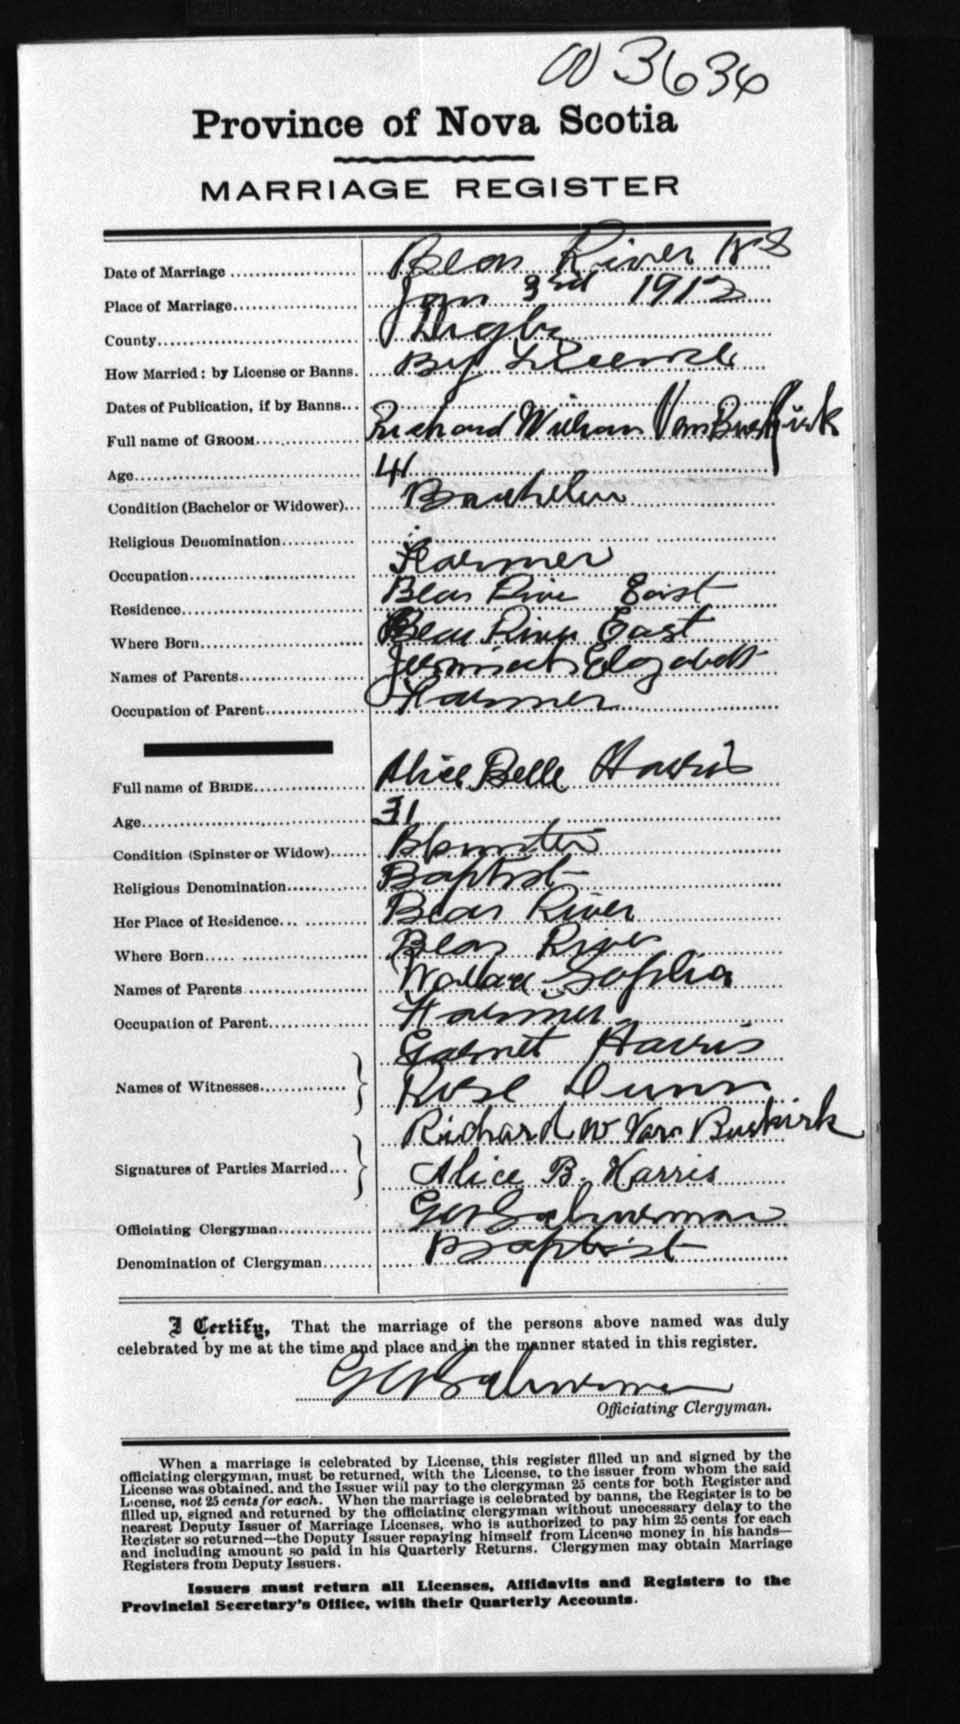 3636
Province of Nova Scotia
MARRIAGE REGISTER
Date of Marriage Bear River N S
Place of Marriage Jan 3rd 1912
County Digby
How Married: by License or Banns. By License
Dates of Publication, if by Banns
Full name of GROOM Richard William VanBuskirk
Age 41
Condition (Bachelor or Widower) Bachelor
Religious Denomination
Occupation Farmer
Residence Bear River East
Where Born Bear River East
Names of Parents Jeremiah Elizabeth
Occupation of Parent Farmer
Full name of BRIDE Alice Belle Harris
Age 31
Condition (Spinster or Widow)
Religious Denomination Baptist
Her Place of Residence Bear River
Where Born Bear River
Names of Parents Wallace Sophia
Occupation of Parent Farmer
Garnet Harris
Names of Witnesses Rose Dunn
Richard W Van Buskirk
Signatures of Parties Married Alice B. Harris
Officiating Clergyman
Denomination of Clergyman Baptist
I Certify, That the marriage of the persons above named was duly
celebrated by me at the time and place and in the manner stated in this register.
Officiating Clergyman.
When a marriage is celebrated by License, this register filled up and signed by the
officiating clergyman, must be returned, with the License, to the issuer from whom the said
License was obtained, and the Issuer will pay to the clergyman 25 cents for both Register and
License, not 25 cents for each. When the marriage is celebrated by banns, the Register is to be
filled up, signed and returned by the officiating clergyman without unecessary delay to the
nearest Deputy Issuer of Marriage Licenses, who is authorized to pay him 25 cents for each
Register so returned—the Deputy Issuer repaying himself from License money in his hands—
and including amount so paid in his Quarterly Returns. Clergymen may obtain Marriage
Registers from Deputy Issuers.
Issuers must return all Licenses, Affidavits and Registers to the
Provincial Secretary's Office, with their Quarterly Accounts.